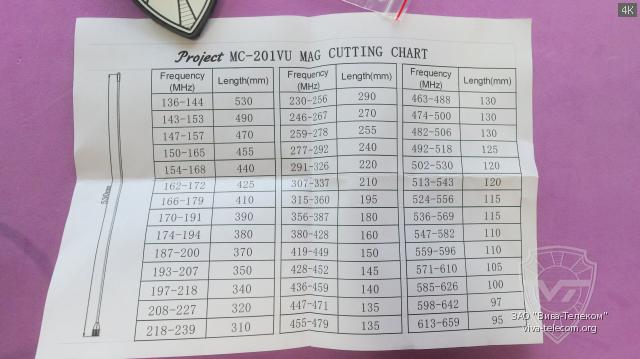 4K
Project MC-201VU MAG CUTTING CHART
Frequency (MHz) Length(mm) Frequency (MHz) Length(mm) Frequency (MHz) Length(mm)
136-144 530 230-256 290 463-488 130
143-153 490 246-267 270 474-500 130
147-157 470 259-278 255 482-506 130
150-165 455 277-292 240 492-518 125
154-168 440 291-326 220 502-530 120
162-172 425 307-337 210 513-543 120
166-179 410 315-360 195 524-556 115
170-191 390 356-387 180 536-569 115
174-194 380 380-428 160 547-582 110
187-200 370 419-449 150 559-596 110
193-207 350 428-452 145 571-610 105
197-218 340 436-459 140 585-626 100
208-227 320 447-471 135 598-642 97
218-239 310 455-479 135 613-659 95
530mm
VT
ЗАО "Вива-Телеком"
viva-telecom.org